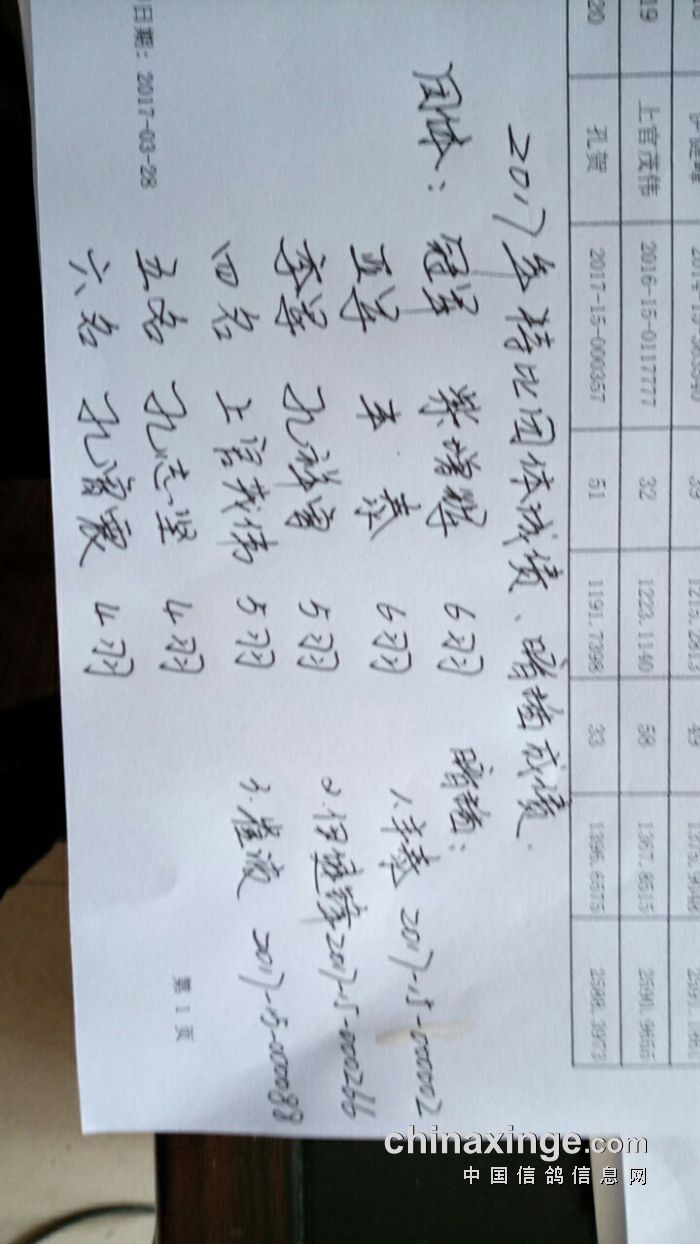 19 上官茂伟 2016-15-0117777 32 1223.1140 58 1367.8515 2590.9655
20 孔贺 2017-15-000357 51 1191.7398 33 1396.6575 2588.3973
2017年特比团体成绩、暗插成绩.
团体: 冠军 6羽 暗插:
亚军 泰 6羽 1、 泰 2017-15-000002
季军 孔祥富 5羽 2、伊健锋 2017-15-000266
四名 上官茂伟 5羽 3、崔波 2017-15-000088
五名 孔志坚 4羽
六名 孔富震 4羽
日期: 2017-03-28 第 1 页
chinaxinge.com
中国信鸽信息网